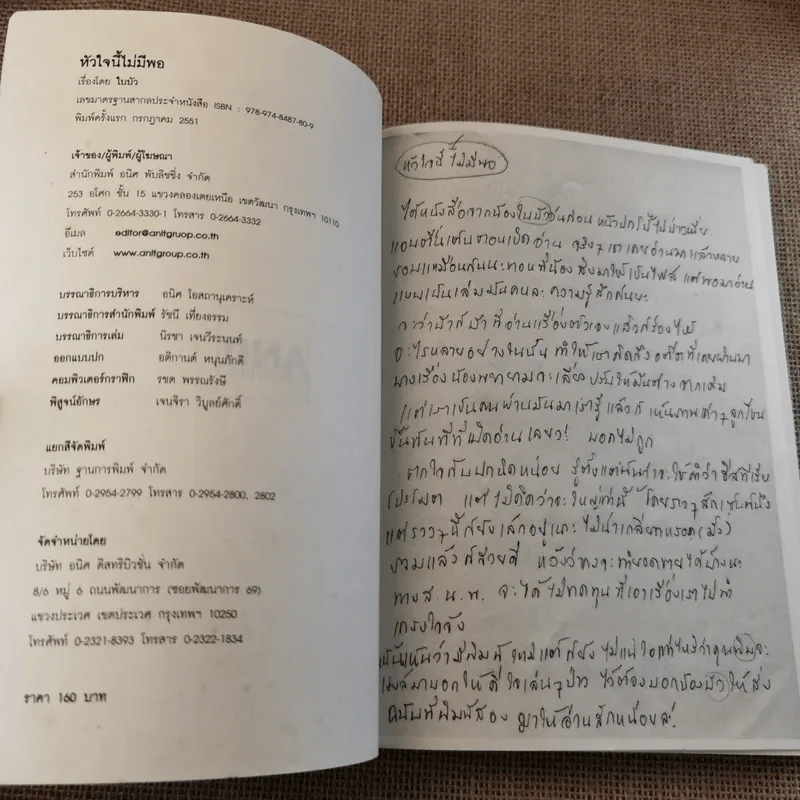 หัวใจนี้ไม่มีพอ
เรื่องโดย ใบบัว
เลขมาตรฐานสากลประจำหนังสือ ISBN : 978-974-8487-80-9
พิมพ์ครั้งแรก กรกฎาคม 2551
เจ้าของ/ผู้พิมพ์/ผู้โฆษณา
สำนักพิมพ์ อนิศ พับลิชชิ่ง จำกัด
253 อโศก ชั้น 15 แขวงคลองเตยเหนือ เขตวัฒนา กรุงเทพฯ 10110
โทรศัพท์ 0-2664-3330-1 โทรสาร 0-2664-3332
อีเมล editor@anitgruop.co.th
เว็บไซต์ www.anitgroup.co.th
บรรณาธิการบริหาร อนิศ โอสถานุเคราะห์
บรรณาธิการสำนักพิมพ์ รัชนี เที่ยงธรรม
บรรณาธิการเล่ม นิรชา เจนวีระนนท์
ออกแบบปก อติกานต์ หนุนภักดี
คอมพิวเตอร์กราฟิก รชต พรรณรังษี
พิสูจน์อักษร เจนจิรา วิบูลย์ศักดิ์
แยกสีจัดพิมพ์
บริษัท ฐานการพิมพ์ จำกัด
โทรศัพท์ 0-2954-2799 โทรสาร 0-2954-2800, 2802
จัดจำหน่ายโดย
บริษัท อนิศ ดิสทริบิวชั่น จำกัด
8/6 หมู่ 6 ถนนพัฒนาการ (ซอยพัฒนาการ 69)
แขวงประเวศ เขตประเวศ กรุงเทพฯ 10250
โทรศัพท์ 0-2321-8393 โทรสาร 0-2322-1834
ราคา 160 บาท
หัวใจนี้ ไม่มีพอ
ได้หนังสือจากน้องใบบัววันก่อน หน้าปก
แอบตื่นเต้นตอนเปิดอ่าน จริงๆ เราเคยอ่านมาแล้วหลาย
รอบเหมือนกันนะตอนที่น้องส่งมาให้เป็นไฟล์ แต่พอมาอ่าน
แบบเป็นเล่มมันคนละความรู้สึกกันนะ
ที่อ่านเรื่องตัวเองแล้วร้องไห้
อะไรหลายอย่างในนั้น ทำให้เราคิดถึงอดีตที่เคยผ่านมา
บางเรื่องน้องพยายามจะเลี่ยง ปรับให้มันต่างจากเดิม
แต่เราเป็นคนผ่านมันมา เรารู้แล้วก็เห็นภาพเก่าๆ ถูกโยน
ขึ้นทันทีที่เปิดอ่านเลยว! บอกไม่ถูก
ตกใจกับปกนิดหน่อย รู้ตั้งแต่ต้นว่าจะใช้คำว่า
โปรโมต แต่ไม่คิดว่าจะใหญ่เท่านี้
แต่ราวๆ นี้ก็ยังเล็กอยู่นะ ไม่น่าเกลียดหรอก(มั้ง)
รวมแล้วก็สวยดี หวังว่าคงจะทำยอดขายได้บ้างนะ
ทาง ส.น.พ. จะได้ไม่ขาดทุนที่เอาเรื่องเราไปทำ
เกรงใจจัง
ไม่แน่ใจ
บอกให้ดีใจเล่นๆ ไว้ต้องบอกน้องบัวให้ส่ง
ฉบับที่พิมพ์สอง มาให้อ่านสักหน่อยละ!